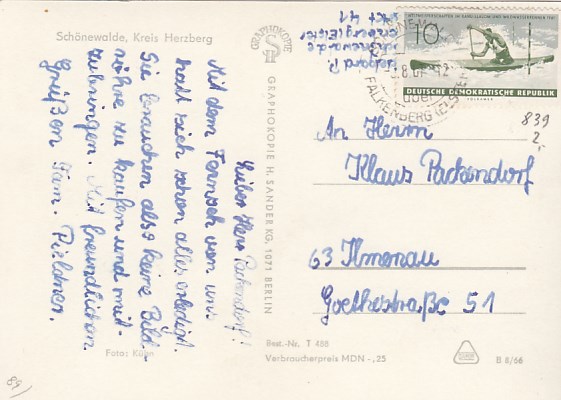 Schönewalde, Kreis Herzberg
Lieber Herr Packendorf!
Mit dem Fernseh von uns
hat sich schon alles erledigt.
Sie brauchen also keine Bild-
röhre zu kaufen und mit-
zubringen. Mit freundlichen
Grüßen Fam. Pieldner.
Foto: Kühn
GRAPHOKOPIE
GRAPHOKOPIE H. SANDER KG, 1071 BERLIN
10
DEUTSCHE DEMOKRATISCHE REPUBLIK
FALKENBERG (ELSTER)
über
839
2,-
An Herrn
Klaus Packendorf
63 Ilmenau
Goethestraße 51
Best.-Nr. T 488
Verbraucherpreis MDN -,25
B 8/66
89